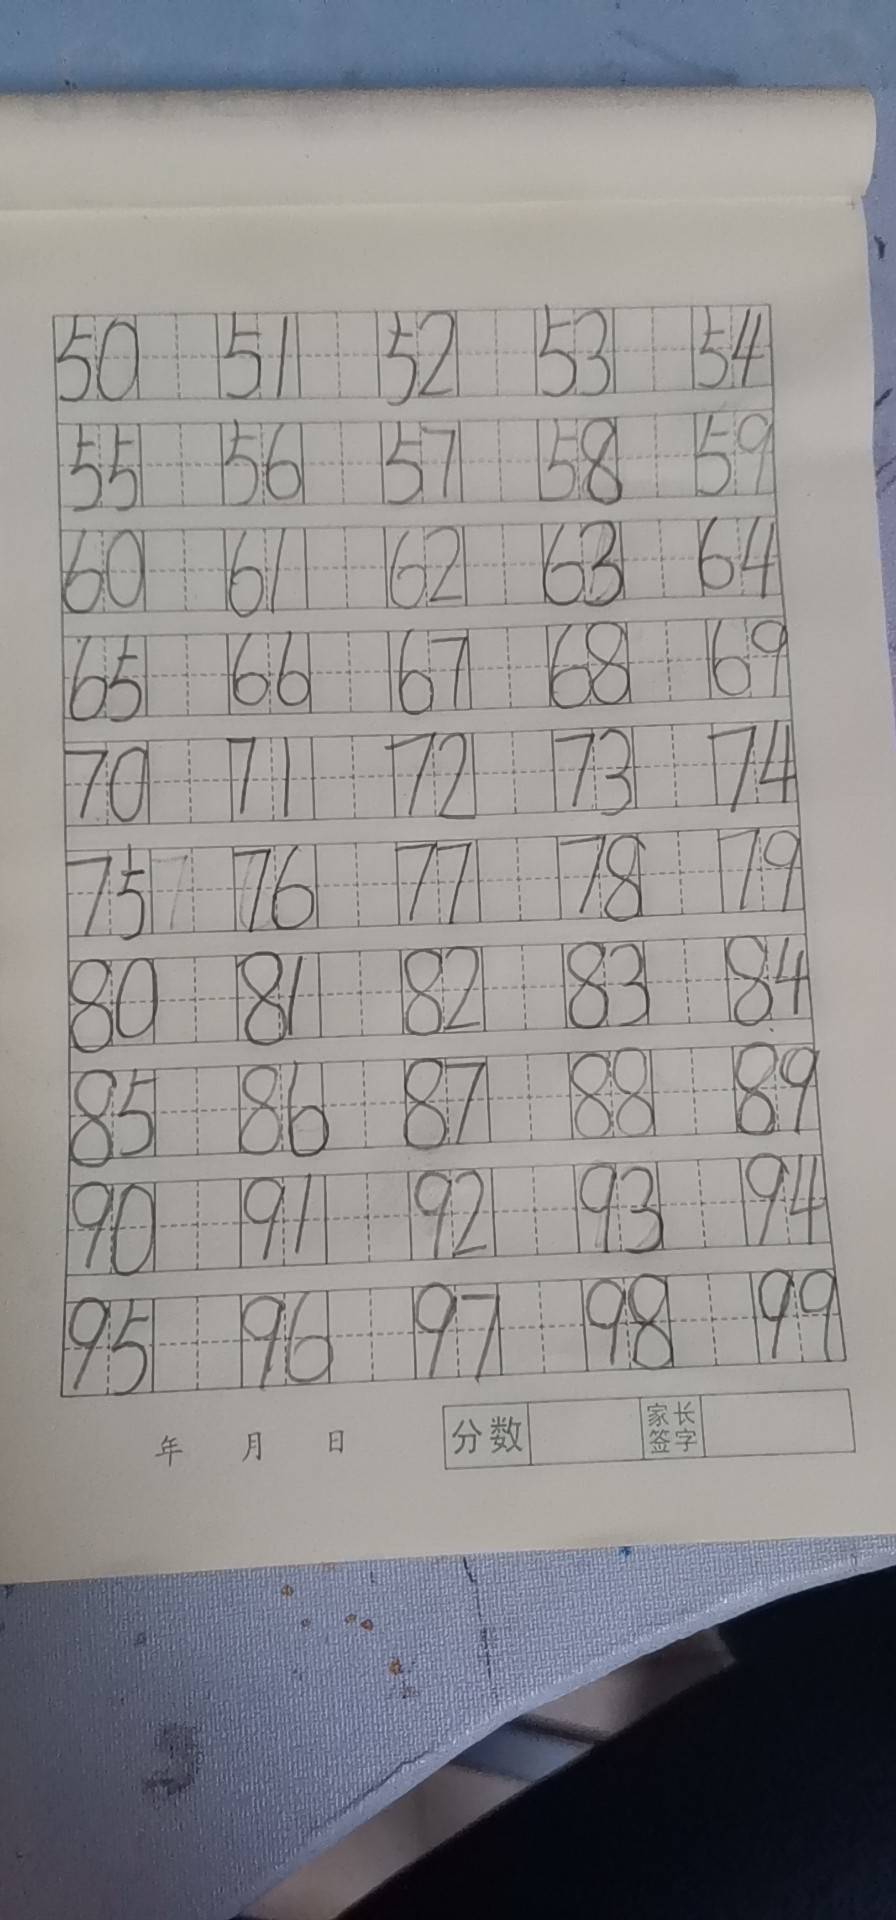 50 51 52 53 54
55 56 57 58 59
60 61 62 63 64
65 66 67 68 69
70 71 72 73 74
75 7 76 77 78 79
80 81 82 83 84
85 86 87 88 89
90 91 92 93 94
95 96 97 98 99
年 月 日 分数 家长签字